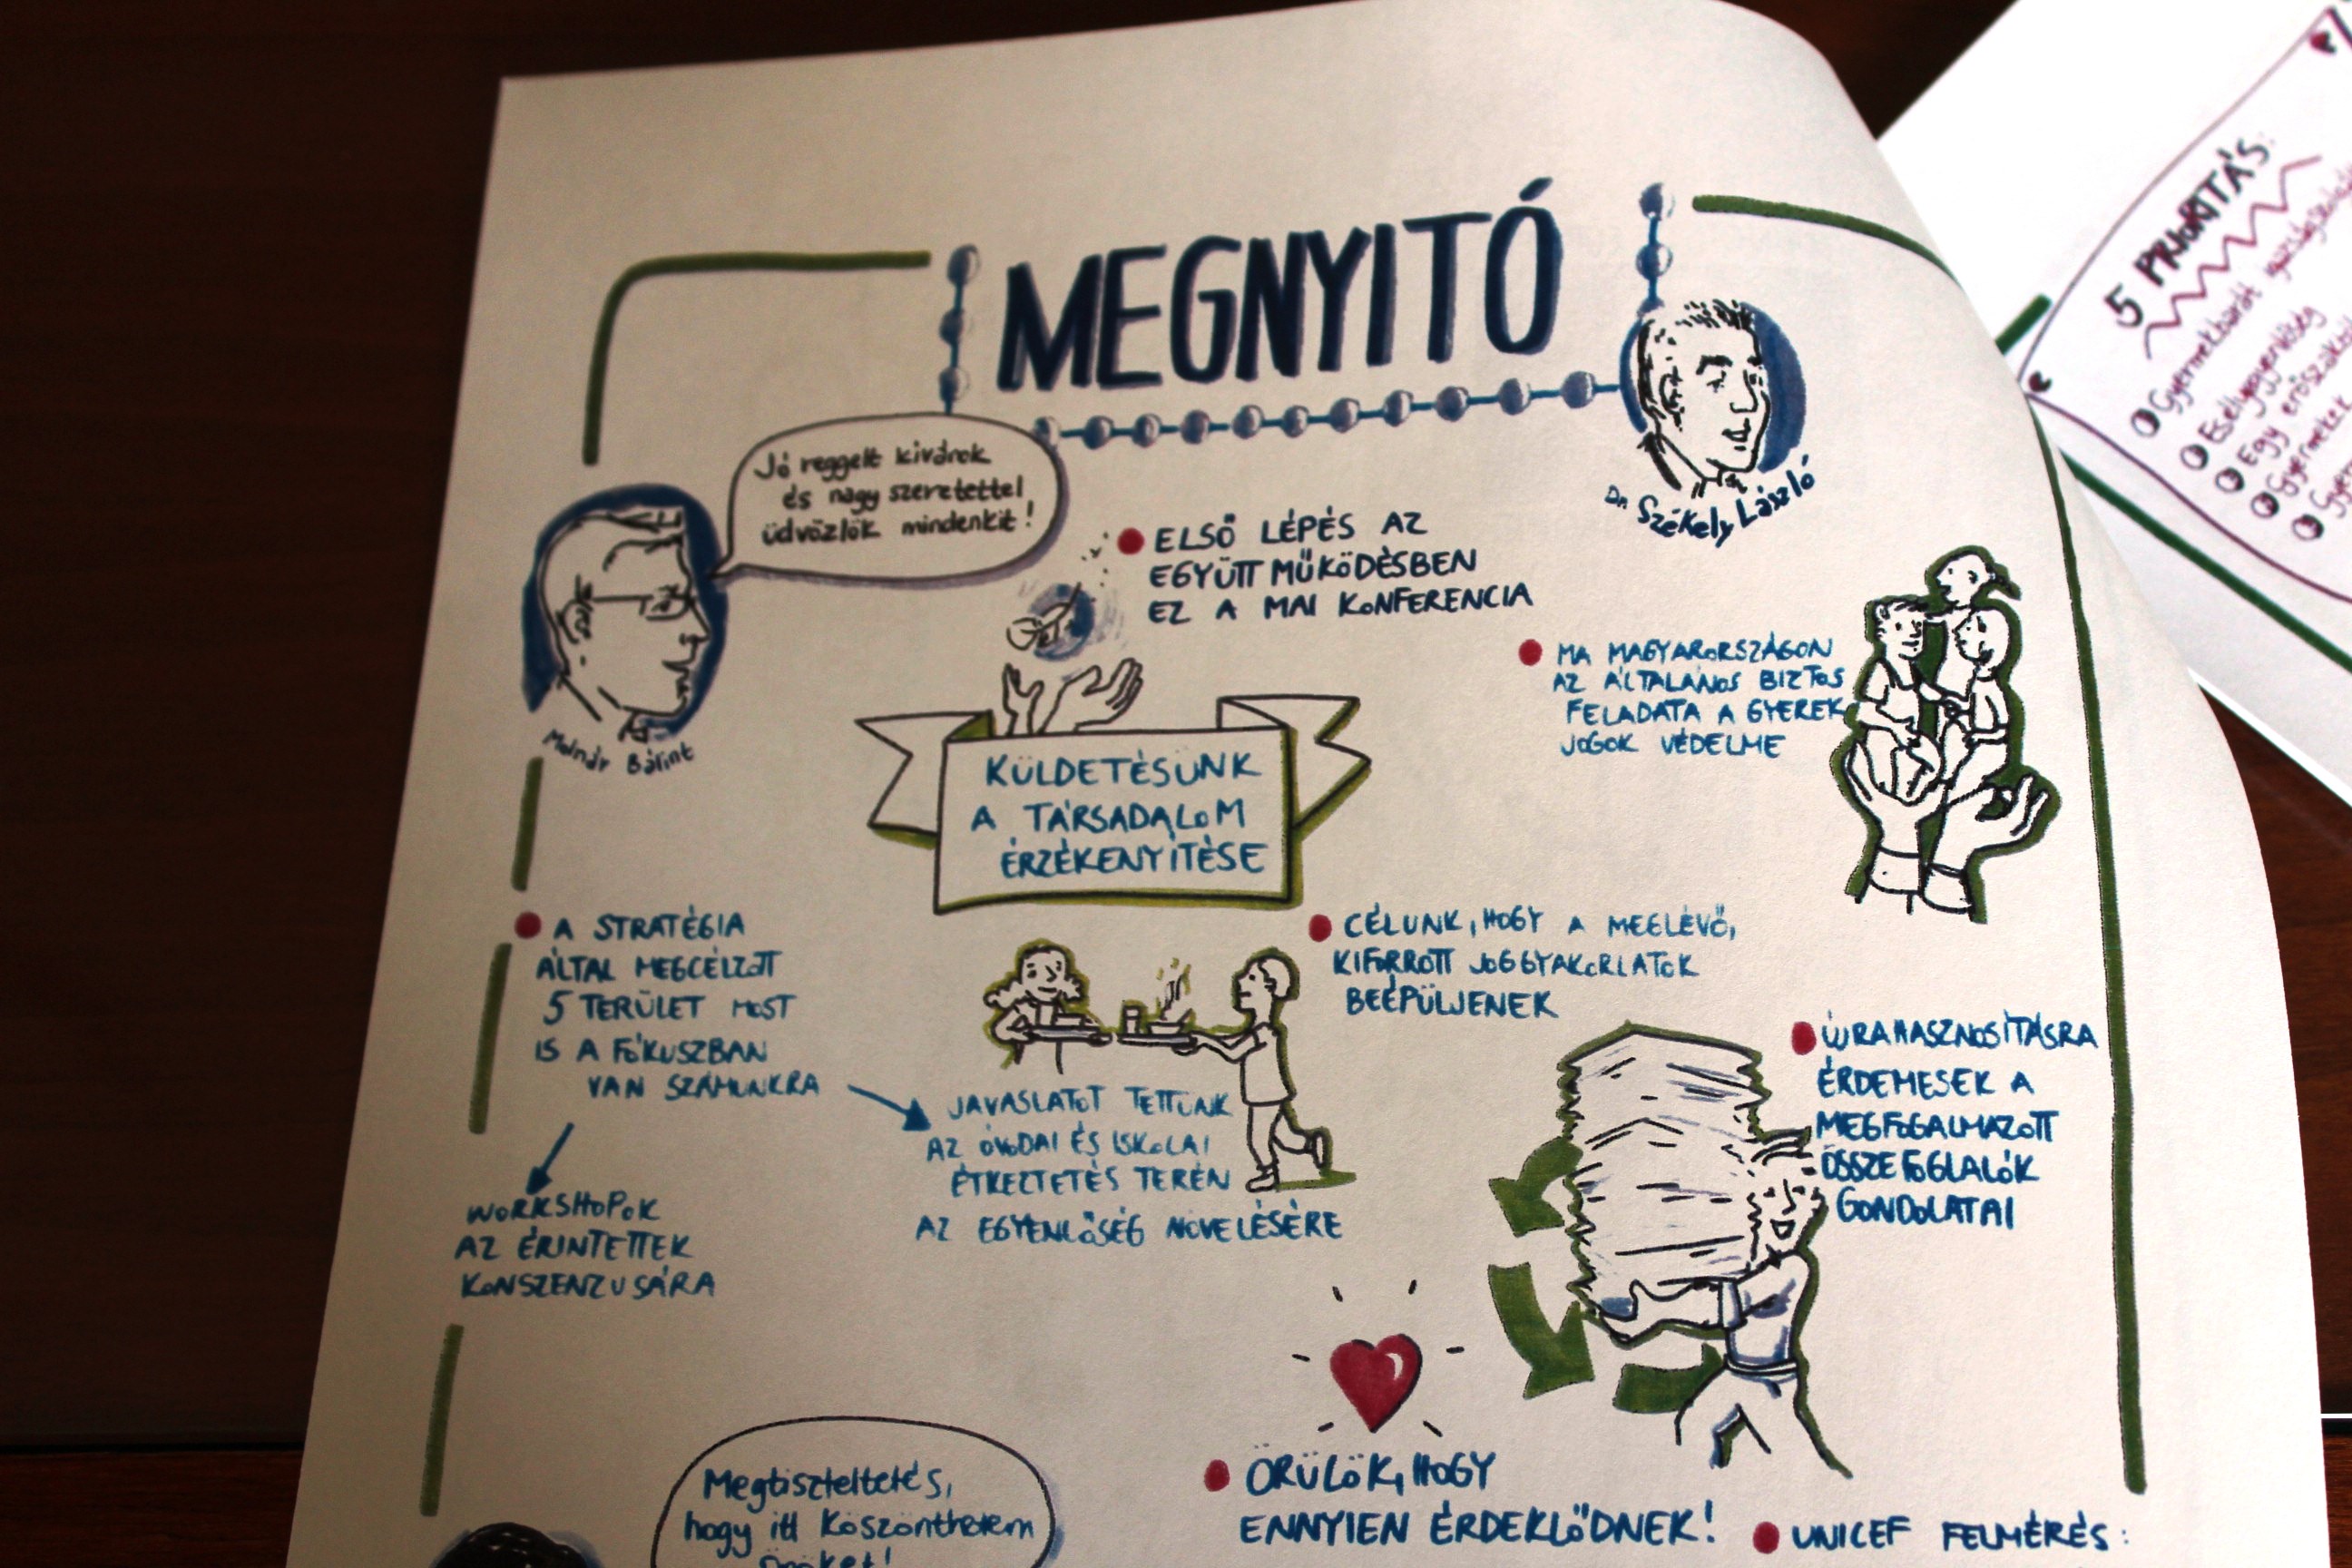 MEGNYITÓ
Jó reggelt kívánok
és nagy szeretettel
üdvözlök mindenkit!
Molnár Bálint
Dr. Székely László
ELSŐ LÉPÉS AZ
EGYÜTTMŰKÖDÉSBEN
EZ A MAI KONFERENCIA
MA MAGYARORSZÁGON
AZ ÁLTALÁNOS BIZTOS
FELADATA A GYEREK
JOGOK VÉDELME
KÜLDETÉSÜNK
A TÁRSADALOM
ÉRZÉKENYÍTÉSE
A STRATÉGIA
ÁLTAL MEGCÉLZOTT
5 TERÜLET MOST
IS A FÓKUSZBAN
VAN SZÁMUNKRA
WORKSHOPOK
AZ ÉRINTETTEK
KONSZENZUSÁRA
JAVASLATOT TETTÜNK
AZ ÓVODAI ÉS ISKOLAI
ÉTKEZTETÉS TERÉN
AZ EGYENLŐSÉG NÖVELÉSÉRE
CÉLUNK, HOGY A MEGLÉVŐ,
KIFORROTT JOGGYAKORLATOK
BEÉPÜLJENEK
ÚJRAHASZNOSÍTÁSRA
ÉRDEMESEK A
MEGFOGALMAZOTT
ÖSSZEFOGLALÓK
GONDOLATAI
ÖRÜLÖK, HOGY
ENNYIEN ÉRDEKLŐDNEK!
UNICEF FELMÉRÉS:
Megtiszteltetés,
hogy itt köszönthetem
Önöket!
5 PRIORITÁS:
Gyermekbarát
Esélyegyenlőség
Egy
Gyermeket